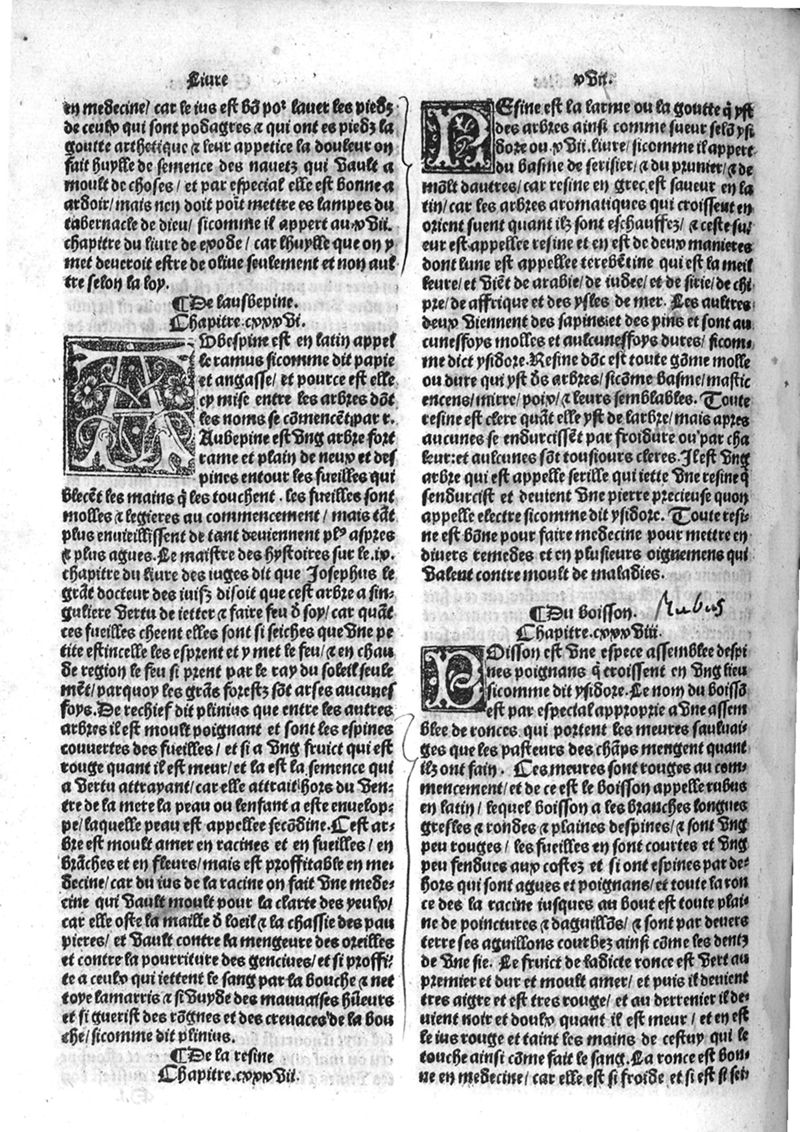 Livre
xvii.
en medecine/ car le ius est bõ por lauer les piedz
de ceulx qui sont podagres & qui ont es piedz la
goutte arthetique & leur appetice la douleur on
fait huylle de semence des nauetz qui vault a
moult de choses/ et par especial elle est bonne a
ardoir/ mais nen doit poĩt mettre es lampes du
tabernacle de dieu/ sicomme il appert au.xvii.
chapitre du liure de exode/ car lhuylle que on y
met deueroit estre de oliue seulement et non aul
tre selon la loy.
¶De lausbepine.
Chapitre.cxxxvi.
AUbespine est en latin appel
le ramus sicomme dit papie
et angasse/ et pource est elle
cy mise entre les arbres dõt
les noms se cõmencẽt par r.
Aubepine est vng arbre fort
rame et plain de neux et des
pines entour les fueilles qui
blecẽt les mains q̃ les touchent. les fueilles sont
molles & legieres au commencement/ mais tãt
plus enuieillissent de tant deuiennent plꝰ aspres
& plus agues. Le maistre des hystoires sur le.ix.
chapitre du liure des iuges dit que Josephus le
grãt docteur des iuifz disoit que cest arbre a sin-
guliere vertu de ietter & faire feu õ soy/ car quãt
ces fueilles cheent elles sont si seiches que vne pe
tite estincelle les esprent et y met le feu/ & en chau
de region le feu si prent par le ray du soleil seule
mẽt/ parquoy les grãs forestz sõt arses aucunes
foys. De rechief dit plinius que entre les autres
arbres il est moult poignant et sont les espines
couuertes des fueilles/ et si a vng fruict qui est
rouge quant il est meur/ et la est la semence qui
a vertu attrayant/ car elle attrait hors du ven-
tre de la mere la peau ou lenfant a este enuelop-
pe/ laquelle peau est appellee secõdine. Cest ar-
bre est moult amer en racines et en fueilles/ en
brãches et en fleurs/ mais est proffitable en me-
decine/ car du ius de la racine on fait vne mede-
cine qui vault moult pour la clarte des yeulx/
car elle oste la maille õ loeil & la chassie des pau
pieres/ et vault contre la mengeure des oreilles
et contre la pourriture des genciues/ et si proffi-
te a ceulx qui iettent le sang par la bouche & net
toye lamarris & si vuyde des mauuaises hũeurs
et si guerist des rõgnes et des creuaces de la bou
che/ sicomme dit plinius.
¶De la resine
Chapitre.cxxxvii.
REsine est la larme ou la goutte q̃ yst
des arbres ainsi comme sueur selõ ysi
dore ou.xvii. liure/ sicomme il appert
du basme de serisier/ & du prunier/ & de
mõlt dautres/ car resine en grec est saueur en la
tin/ car les arbres aromatiques qui croissent en
orient suent quant ilz sont eschauffez/ & ceste su-
eur est appellee resine et en est de deux manieres
dont lune est appellee terebẽtine qui est la meil
leure/ et viẽt de arabie/ de iudee/ et de sirie/ de chi
pre/ de affrique et des ysles de mer. Les aultres
deux viennent des sapins et des pins et sont au
cunessfoys molles et aulcunessfoys dures/ sicom-
me dict ysidore. Resine dõc est toute gõme molle
ou dure qui yst õs arbres/ sicõme basme/ mastic
encens/ mirre/ poix/ & leurs semblables. Toute
resine est clere quãt elle yst de larbre/ mais apres
aucunes se endurcissẽt par froidure ou par cha
leur: et aulcunes sõt tousiours cleres. Il est vng
arbre qui est appelle serille qui iette vne resine q̃
sendurcist et deuient vne pierre precieuse quon
appelle electre sicomme dit ysidore. Toute resi-
ne est bõne pour faire medecine pour mettre en
diuers remedes et en plusieurs oignemens qui
valent contre moult de maladies.
¶Du boisson. Rubus
Chapitre.cxxxviii.
BOisson est vne espece assemblee despi
nes poignans q̃ croissent en vng lieu
sicomme dit ysidore. Le nom du boissõ
est par especial approprie a vne assem
blee de ronces qui portent les meures sauluai-
ges que les pasteurs des chãps mengent quant
ilz ont fain. Ces meures sont rouges au com-
mencement/ et de ce est le boisson appelle rubus
en latin/ lequel boisson a les branches longues
gresles & rondes & plaines despines/ & sont vng
peu rouges/ les fueilles en sont courtes et vng
peu fendues aux costez et si ont espines par de-
hors qui sont agues et poignans/ et toute la ron
ce des la racine iusques au bout est toute plai-
ne de poinctures & daguillõs/ & sont par deuers
terre ses aguillons courbez ainsi cõme les dentz
de vne sie. Le fruict de ladicte ronce est vert au
premier et dur et moult amer/ et puis il deuient
tres aigre et est tres rouge/ et au derrenier il de-
uient noir et doulx quant il est meur/ et en est
le ius rouge et taint les mains de cestuy qui le
touche ainsi cõme fait le sang. La ronce est bon-
ne en medecine/ car elle est si froide et si est si sei-